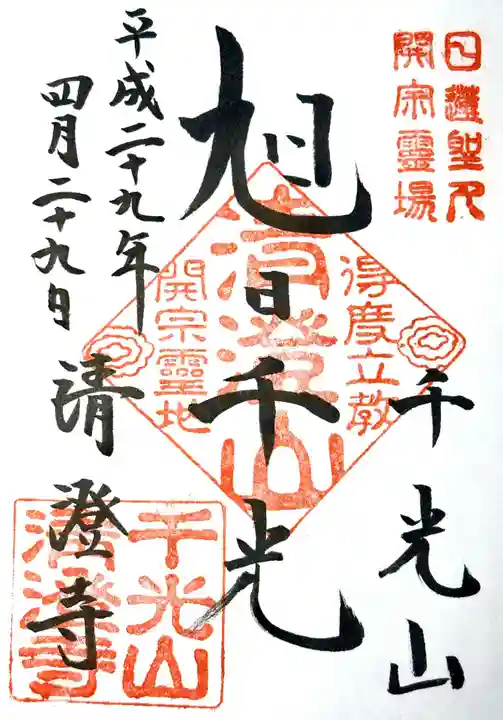 日蓮聖人
開宗靈場
千光山
旭日千光
得度立教
清澄山
開宗靈地
平成二十九年
四月二十九日
清澄寺
千光山
清澄寺